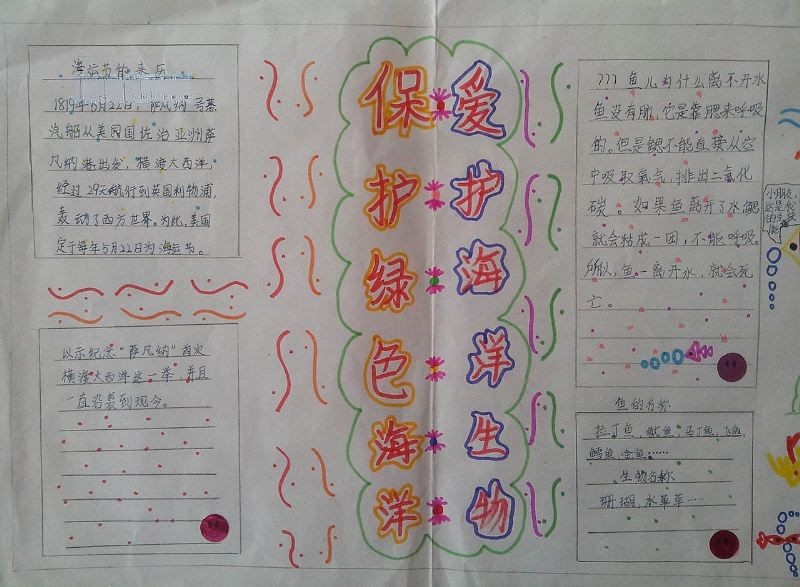 海运节的来历
1819年5月22日，萨凡纳号蒸
汽船从美国国佐治亚洲萨
凡纳港出发，横渡大西洋，
经过29天航行到英国利物浦，
轰动了西方世界。为此，美国
定于每年5月22日为海运节。
以示纪念“萨凡纳”首次
横渡大西洋这一举，并且
一直沿袭到现今。
保护绿色海洋
爱护海洋生物
???鱼儿为什么离不开水
鱼没有肺，它是靠腮来呼吸
的。但是鳃不能直接从空
中吸取氧气，排出二氧化
碳。如果鱼离开了水，鳃
就会粘成一团，不能呼吸。
所以，鱼一离开水，就会死
亡。
小朋友，
鱼的名称
拉丁鱼，鱿鱼，马丁鱼，飞鱼，
鳄鱼，金鱼……
生物名称
珊瑚，水草草……